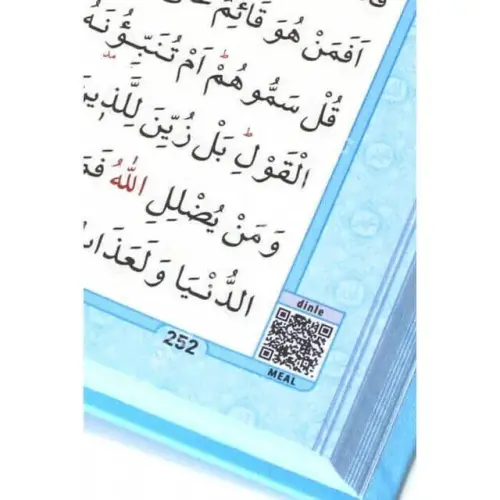 اَفَمَنْ هُوَ قَٓائِمٌ
قُلْ سَمُّوهُمْ اَمْ تُنَبِّؤُ۫نَهُ
الْقَوْلِ بَلْ زُيِّنَ لِلَّذ۪ينَ
وَمَنْ يُضْلِلِ اللّٰهُ فَمَا
الدُّنْيَا وَلَعَذَابُ
252
dinle
MEAL